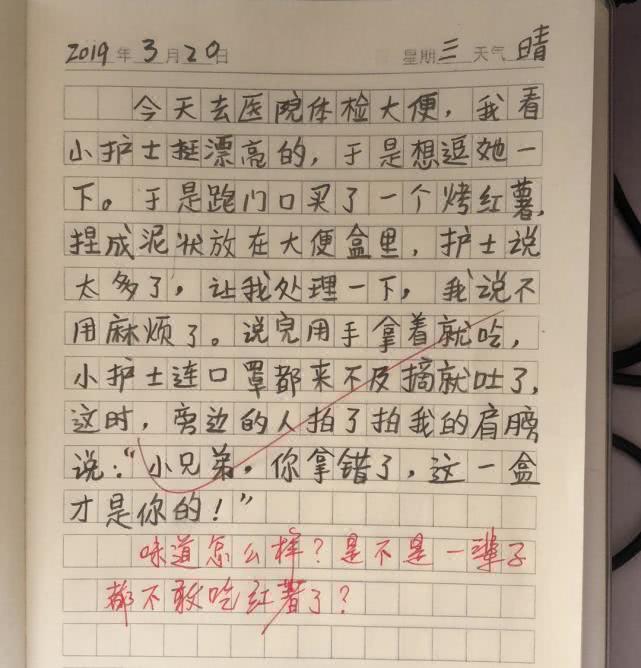 2019年3月20日 星期三天气晴
今天去医院体检大便，我看
小护士挺漂亮的，于是想逗她一
下。于是跑门口买了一个烤红薯，
捏成泥状放在大便盒里，护士说
太多了，让我处理一下，我说不
用麻烦了。说完用手拿着就吃，
小护士连口罩都来不及摘就吐了，
这时，旁边的人拍了拍我的肩膀
说：“小兄弟，你拿错了，这一盒
才是你的！”
味道怎么样？是不是一辈子
都不敢吃红薯了？